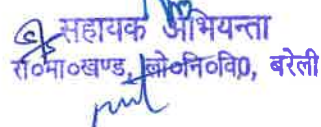 सहायक अभियन्ता
रा०मा०खण्ड, लो०नि०वि०, बरेली